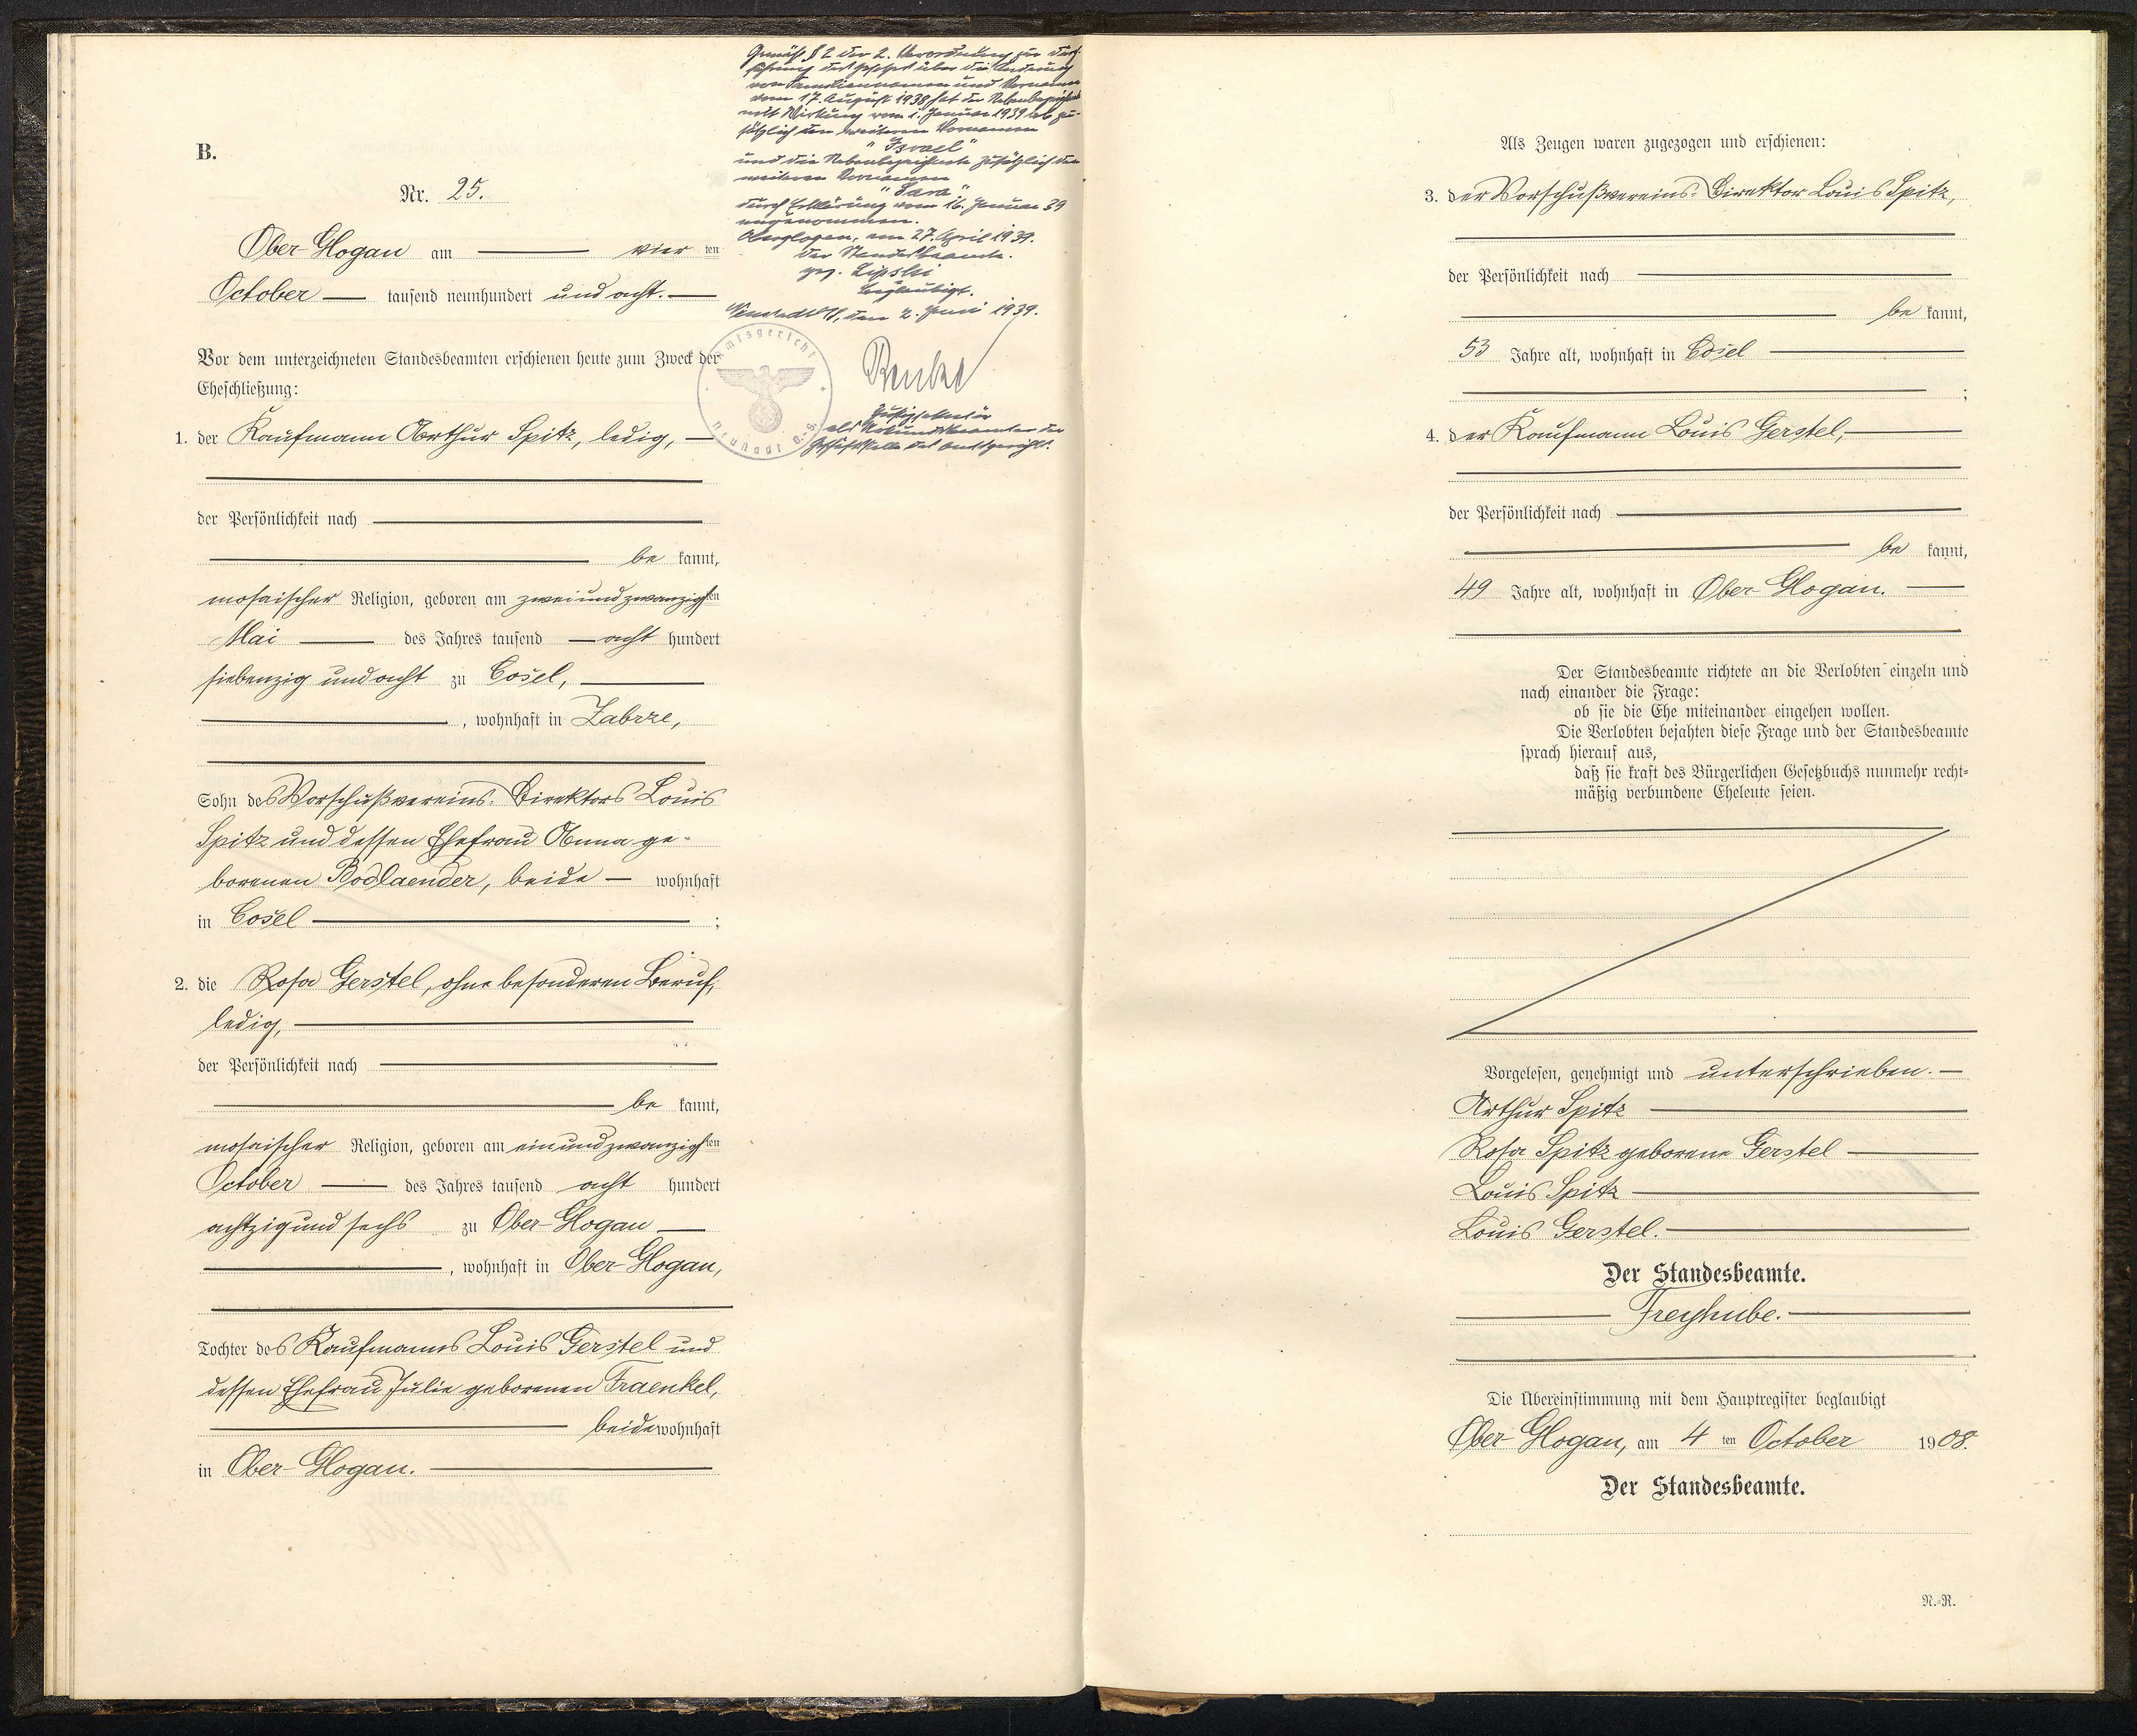 B.
Nr. 25.
Ober-Glogau am vier ten
October tausend neunhundert und acht.
Vor dem unterzeichneten Standesbeamten erschienen heute zum Zweck der
Eheschließung:
1. der Kaufmann Arthur Spitz, ledig,
der Persönlichkeit nach
be kannt,
mosaischer Religion, geboren am zweiundzwanzigsten
Mai des Jahres tausend acht hundert
siebenzig und acht zu Cosel,
, wohnhaft in Zabrze,
Sohn des Vorschußvereins-Direktors Louis
Spitz und dessen Ehefrau Anna ge-
borenen Bodlaender, beide wohnhaft
in Cosel ;
2. die Rosa Gerstel, ohne besonderen Beruf,
ledig,
der Persönlichkeit nach
be kannt,
mosaischer Religion, geboren am einundzwanzigsten
October des Jahres tausend acht hundert
achtzig und sechs zu Ober-Glogau
, wohnhaft in Ober-Glogau,
Tochter des Kaufmanns Louis Gerstel und
dessen Ehefrau Julie geborenen Fraenkel,
beide wohnhaft
in Ober-Glogau.
Gemäß § 2 der 2. Verordnung zur Durch-
führung des Gesetzes über die Änderung
von Familiennamen und Vornamen
vom 17. August 1938 hat der Nebenbezeichnete
mit Wirkung vom 1. Januar 1939 ab zu-
sätzlich den weiteren Vornamen
"Israel"
und die Nebenbezeichnete zusätzlich den
weiteren Vornamen
"Sara"
durch Erklärung vom 16. Januar 39
angenommen.
Oberglogau, am 27. April 1939.
Der Standesbeamte.
gez. Lipski
Beglaubigt.
Neustadt OS, den 2. Juni 1939.
Amtsgericht
Neustadt O.-S.
Justizsekretär
als Urkundsbeamter der
Geschäftsstelle des Amtsgerichts.
Als Zeugen waren zugezogen und erschienen:
3. der Vorschußvereins-Direktor Louis Spitz,
der Persönlichkeit nach
be kannt,
53 Jahre alt, wohnhaft in Cosel
;
4. der Kaufmann Louis Gerstel,
der Persönlichkeit nach
be kannt,
49 Jahre alt, wohnhaft in Ober-Glogau.
Der Standesbeamte richtete an die Verlobten einzeln und
nach einander die Frage:
ob sie die Ehe miteinander eingehen wollen.
Die Verlobten bejahten diese Frage und der Standesbeamte
sprach hierauf aus,
daß sie kraft des Bürgerlichen Gesetzbuchs nunmehr recht-
mäßig verbundene Eheleute seien.
Vorgelesen, genehmigt und unterschrieben.
Arthur Spitz
Rosa Spitz geborene Gerstel
Louis Spitz
Louis Gerstel.
Der Standesbeamte.
Freyhube.
Die Übereinstimmung mit dem Hauptregister beglaubigt
Ober-Glogau, am 4 ten October 1908.
Der Standesbeamte.
N.-R.